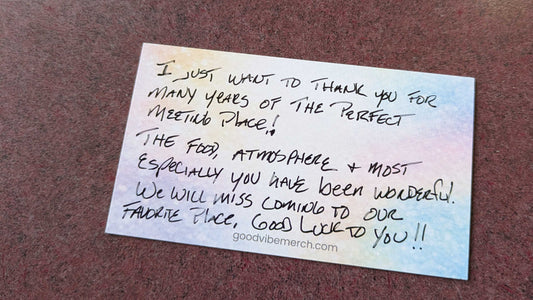 I JUST WANT TO THANK YOU FOR
MANY YEARS OF THE PERFECT
MEETING PLACE!
THE FOOD, ATMOSPHERE + MOST
ESPECIALLY YOU HAVE been WONDERFUL.
WE WILL MISS COMING TO OUR
FAVORITE PLACE. GOOD LUCK TO YOU!!
goodvibemerch.com